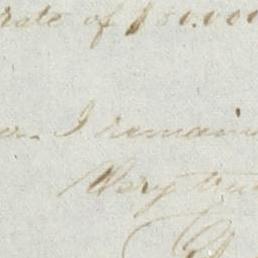 rate of $80.000
I remain
Very